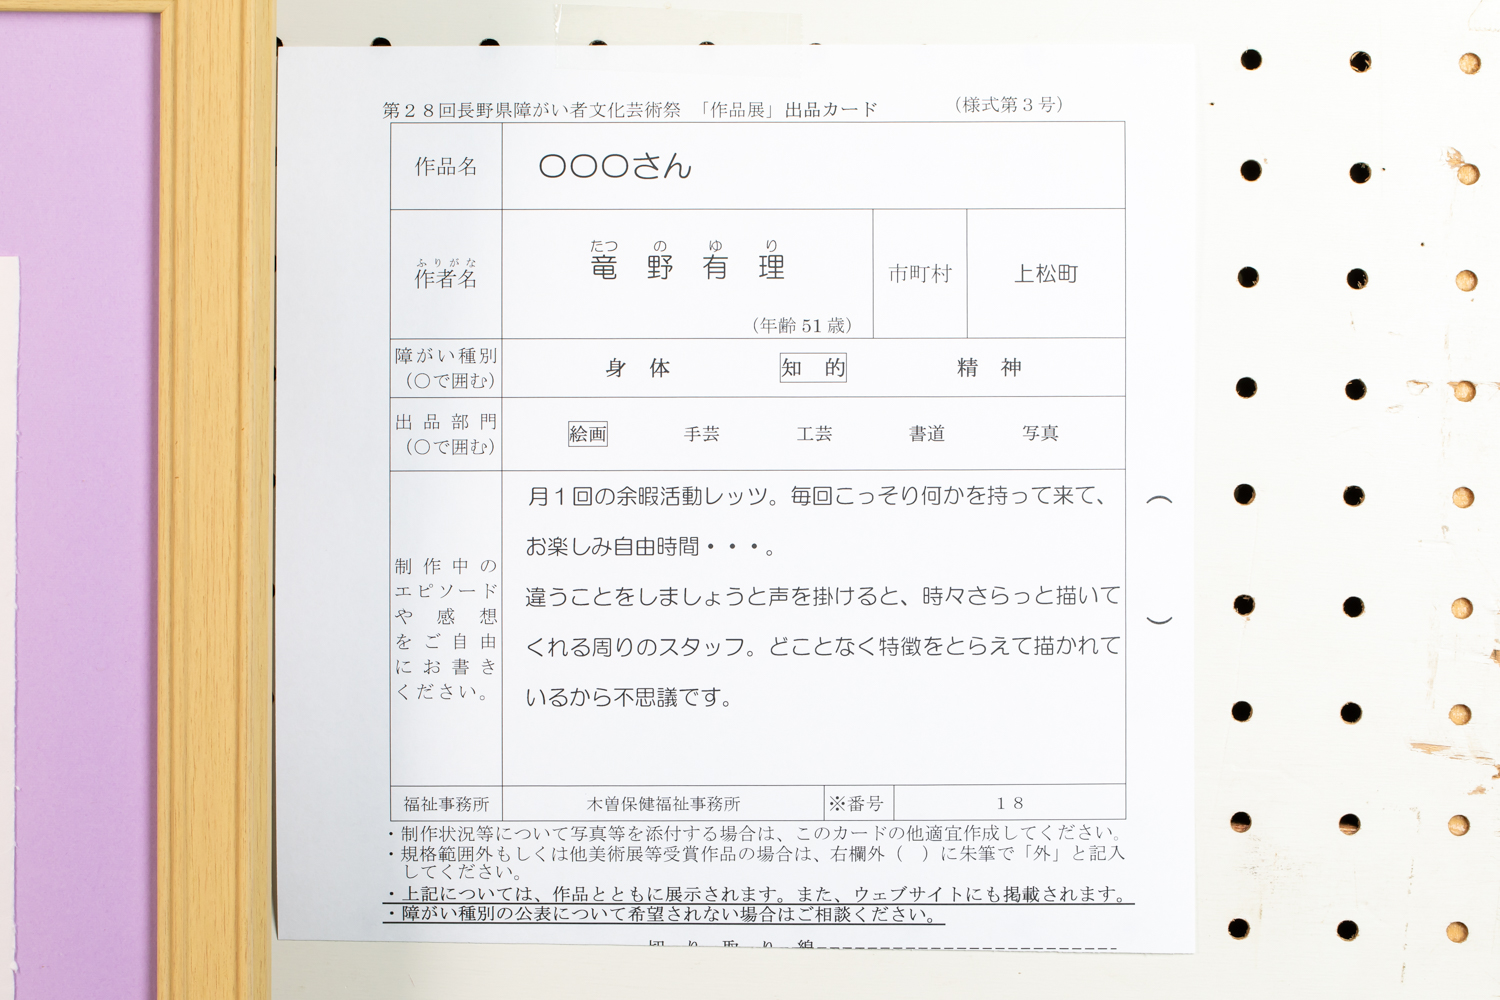 第２８回長野県障がい者文化芸術祭 「作品展」出品カード （様式第３号）
作品名 〇〇〇さん
ふりがな たつ の ゆ り
作者名 竜 野 有 理 市町村 上松町
（年齢 51 歳）
障がい種別 身 体 知 的 精 神
（〇で囲む）
出品部門 絵画 手芸 工芸 書道 写真
（〇で囲む）
制作中の
エピソード
や感想
をご自由
にお書き
ください。
月１回の余暇活動レッツ。毎回こっそり何かを持って来て、
お楽しみ自由時間・・・。
違うことをしましょうと声を掛けると、時々さらっと描いて
くれる周りのスタッフ。どことなく特徴をとらえて描かれて
いるから不思議です。
（ ）
福祉事務所 木曽保健福祉事務所 ※番号 １８
・制作状況等について写真等を添付する場合は、このカードの他適宜作成してください。
・規格範囲外もしくは他美術展等受賞作品の場合は、右欄外（ ）に朱筆で「外」と記入
してください。
・上記については、作品とともに展示されます。また、ウェブサイトにも掲載されます。
・障がい種別の公表について希望されない場合はご相談ください。
切 り 取 り 線